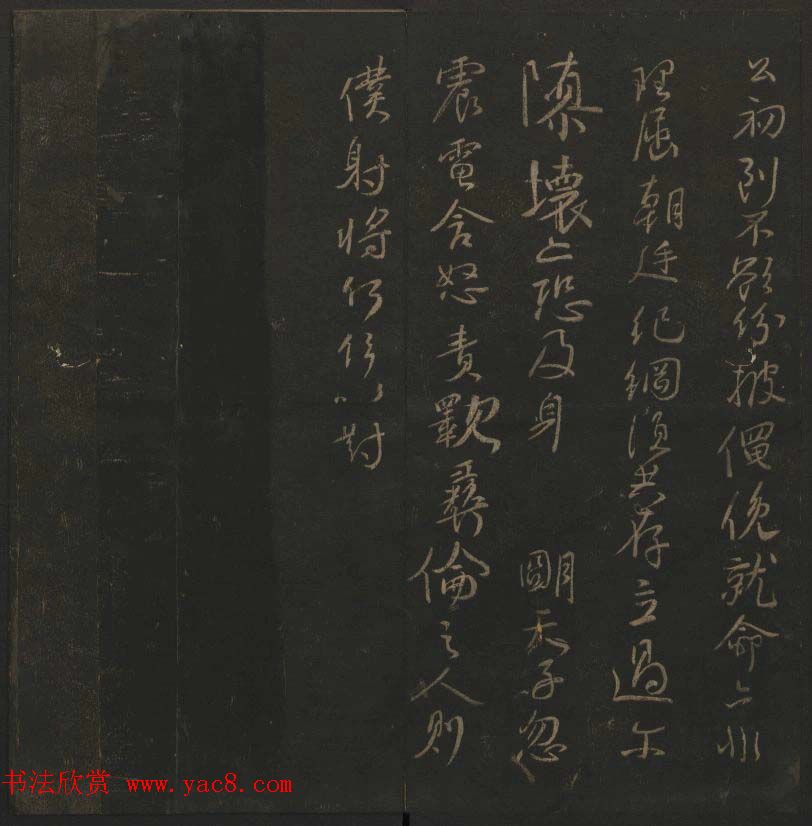 公初到不欲紛披僶俛就命亦非
理屈朝廷紀綱須共存立過尔
隳壞亡恐及身明天子忽
震電含怒責斁彝倫之人則
僕射將何辞以對
书法欣赏 www.yac8.com